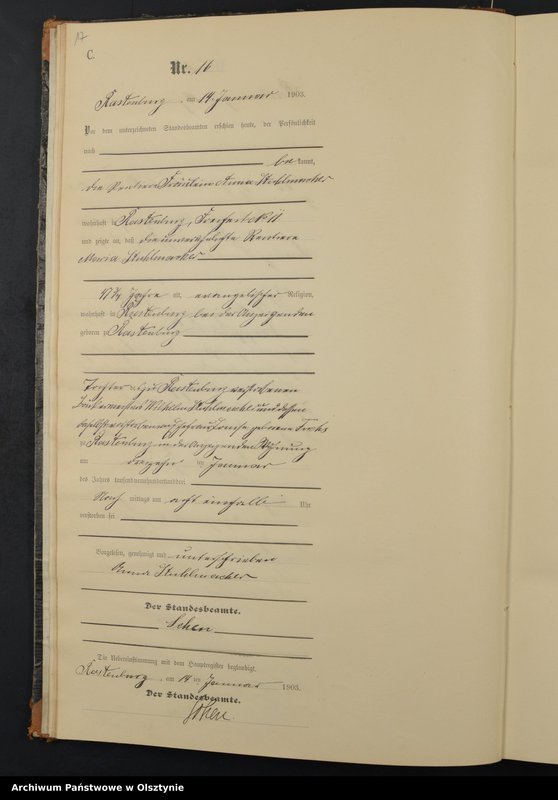 17
C.
Nr. 16
Rastenburg, am 14. Januar 1903.
Vor dem unterzeichneten Standesbeamten erschien heute, der Persönlichkeit
nach
be kannt,
die Rentiere Fräulein Anna Stuhlmacher
wohnhaft in Rastenburg, Freiheit
und zeigte an, daß die unverehelichte Rentiere
Maria Stuhlmacher
Jahre alt, evangelischer Religion,
wohnhaft in Rastenburg bei der Anzeigenden
geboren zu Rastenburg
Tochter zu Rastenburg verstorbenen
Wilhelm Stuhlmacher und dessen
geborene Fuchs
zu Rastenburg in der Anzeigenden Wohnung
am dreizehn ten Januar
des Jahres tausend neunhundert und drei
Nach mittags um acht einhalb Uhr
verstorben sei
Vorgelesen, genehmigt und unterschrieben
Anna Stuhlmacher
Der Standesbeamte.
Die Uebereinstimmung mit dem Hauptregister beglaubigt.
Rastenburg, am 14 ten Januar 1903.
Der Standesbeamte.
Archiwum Państwowe w Olsztynie